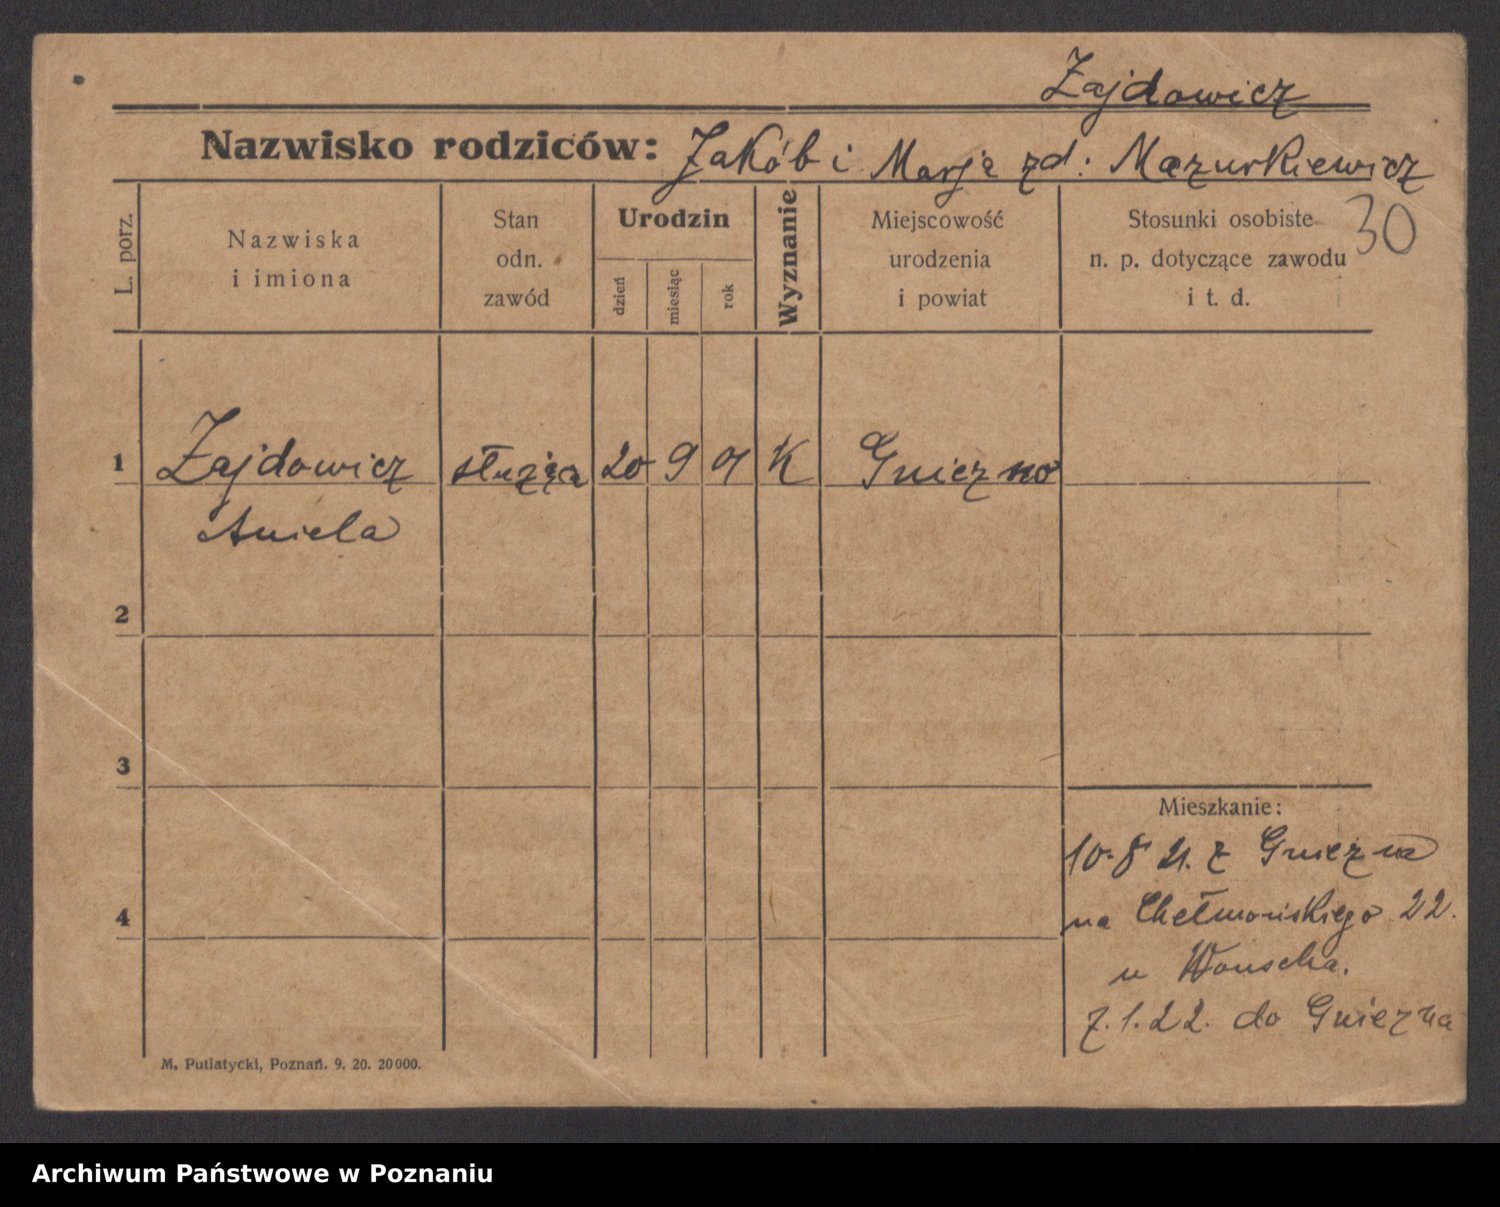 Zajdowicz
Nazwisko rodziców: Jakób i Marja zd: Mazurkiewicz
30
L. porz.
Nazwiska
i imiona
Stan
odn.
zawód
Urodzin
dzień
miesiąc
rok
Wyznanie
Miejscowość
urodzenia
i powiat
Stosunki osobiste
n. p. dotyczące zawodu
i t. d.
1 Zajdowicz służąca 20 9 01 K Gniezno
Aniela
2
3
Mieszkanie:
10.8 21. z Gniezna
na Chełmońskiego 22.
4
u Wonscha.
7.1.22. do Gniezna
M. Putiatycki, Poznań. 9. 20. 20000.
Archiwum Państwowe w Poznaniu